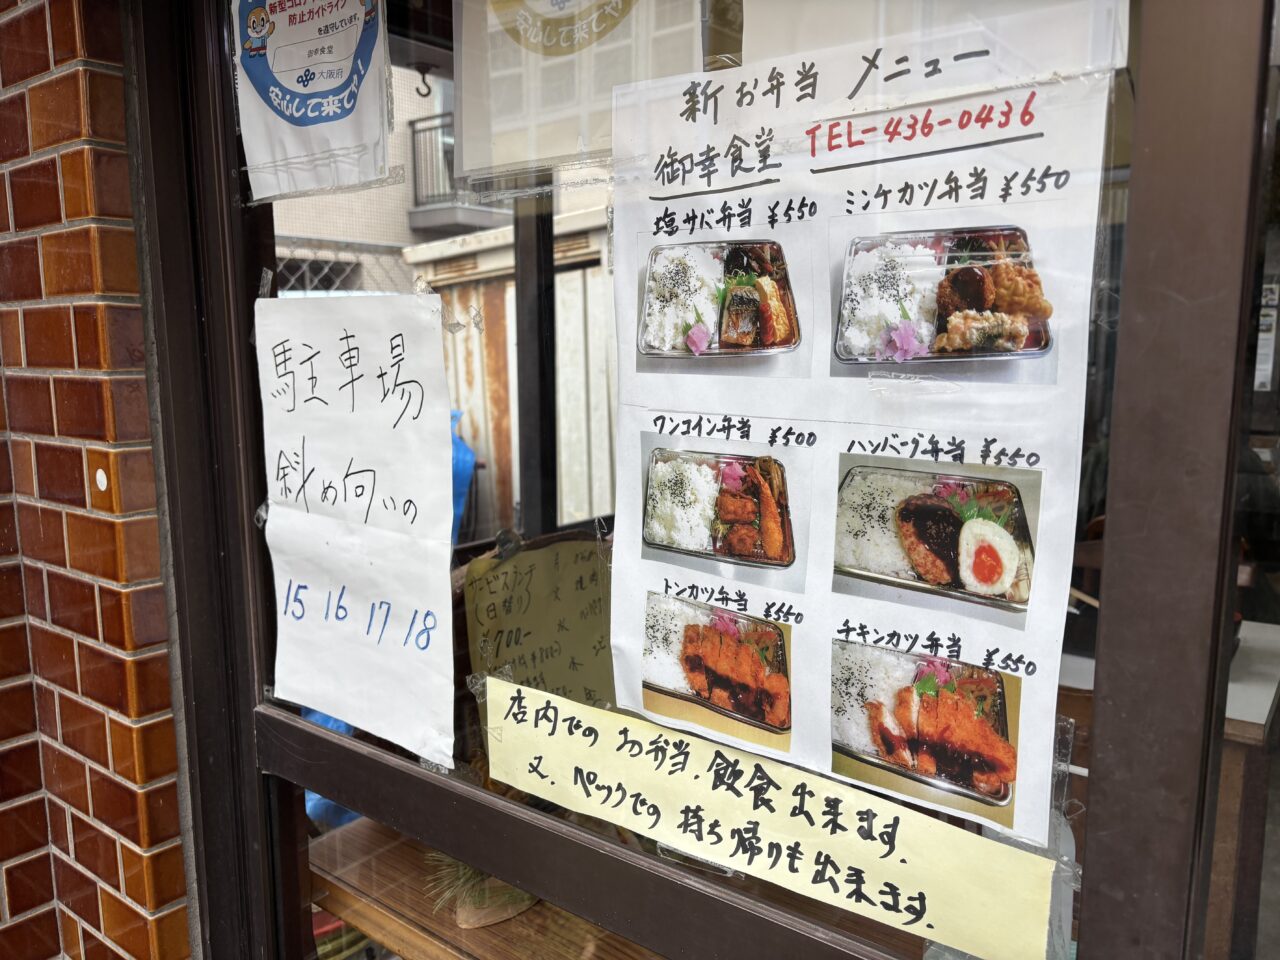 新型コロナウイルス
防止ガイドライン
を遵守しています。
御幸食堂
大阪府
安心して来てや!
安心して来てや!
新お弁当 メニュー
御幸食堂 TEL-436-0436
塩サバ弁当 ¥550
ミンチカツ弁当 ¥550
ワンコイン弁当 ¥500
ハンバーグ弁当 ¥550
トンカツ弁当 ¥550
チキンカツ弁当 ¥550
駐車場
斜め向いの
15 16 17 18
サービスランチ
(日替り)
¥700-
店内でのお弁当、飲食出来ます、
又、パックでの持ち帰りも出来ます、